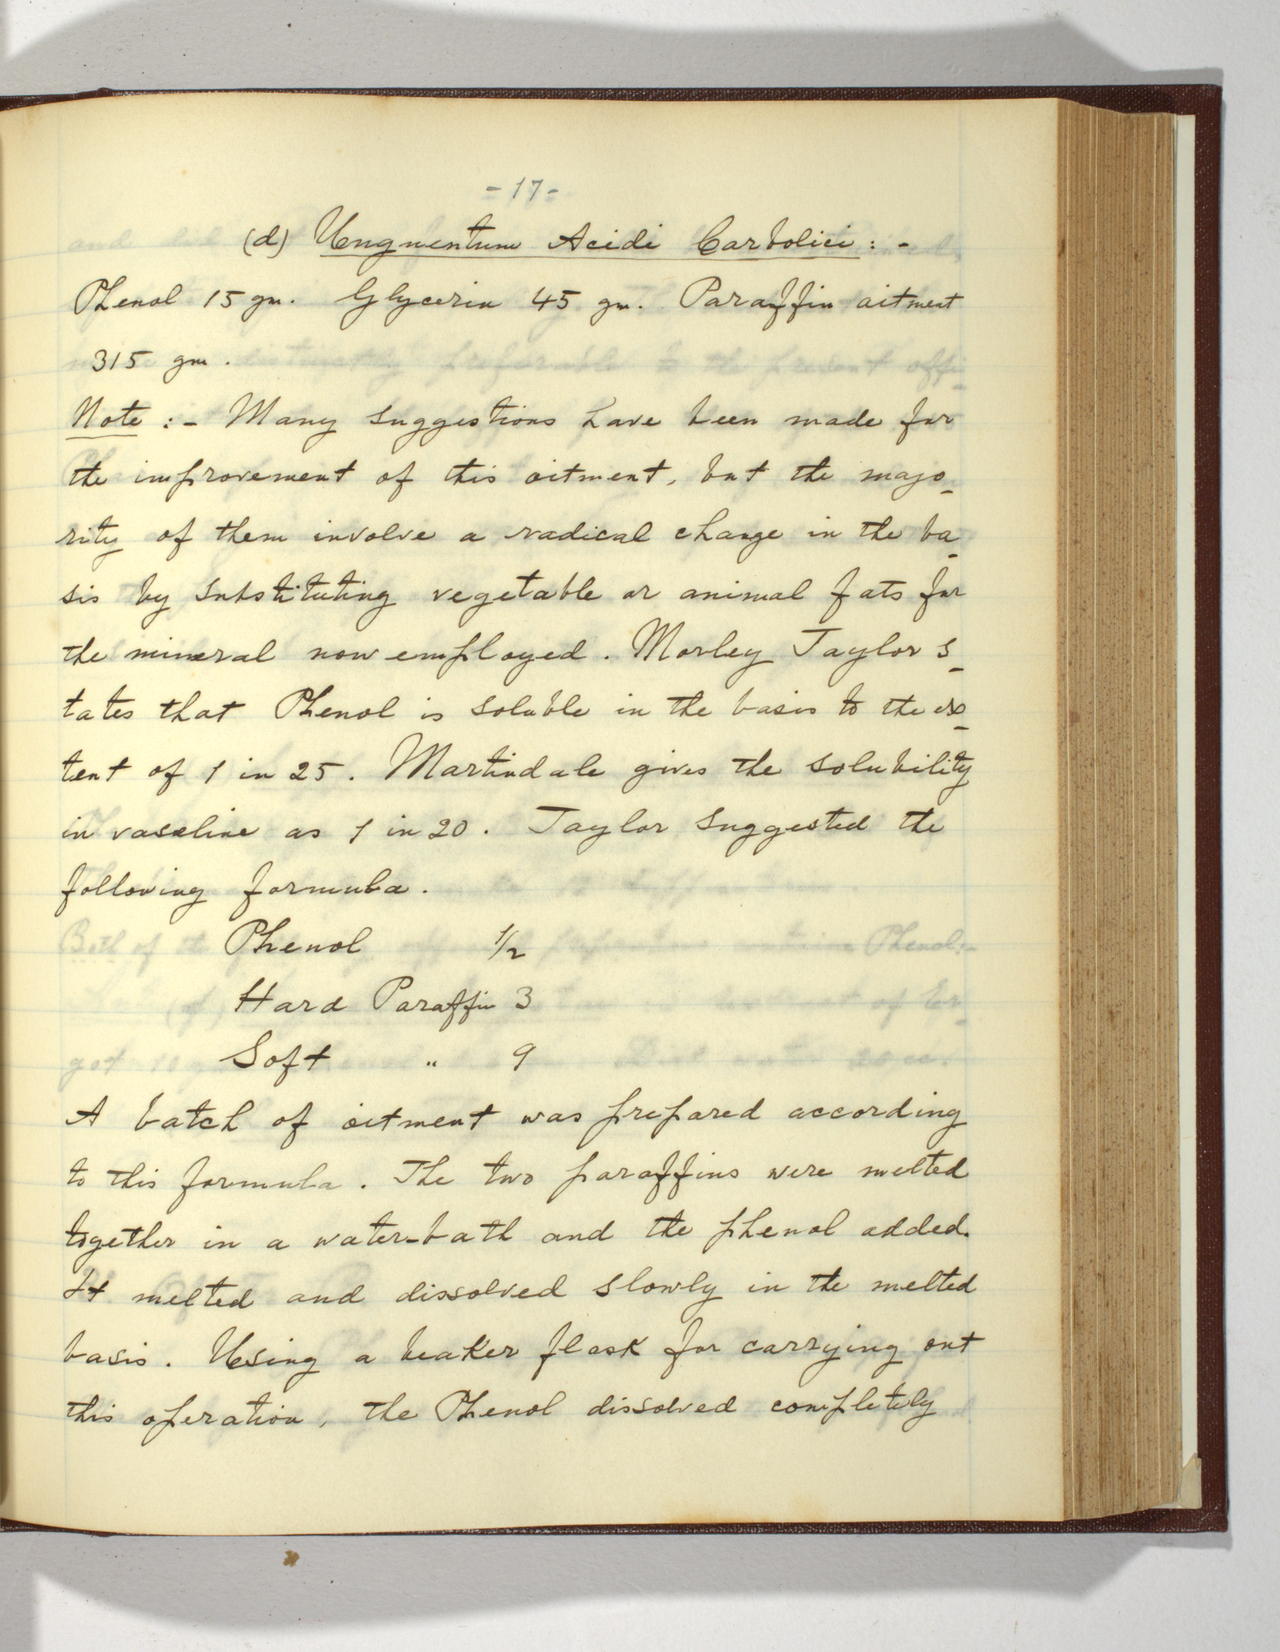 -17-
(d) Unguentum Acidi Carbolici : -
Phenol 15 gm. Glycerin 45 gm. Paraffin oitment
315 gm.
Note :- Many suggestions have been made for
the improvement of this oitment, but the majo-
rity of them involve a radical change in the ba-
sis by substituting vegetable or animal fats for
the mineral now employed. Morley Taylor s-
tates that Phenol is soluble in the basis to the ex-
tent of 1 in 25. Martindale gives the solubility
in vaseline as 1 in 20. Taylor suggested the
following formula.
Phenol 1/2
Hard Paraffin 3
Soft " 9
A batch of oitment was prepared according
to this formula. The two paraffins were melted
together in a water-bath and the phenol added.
It melted and dissolved slowly in the melted
basis. Using a beaker flask for carrying out
this operation, the Phenol dissolved completely